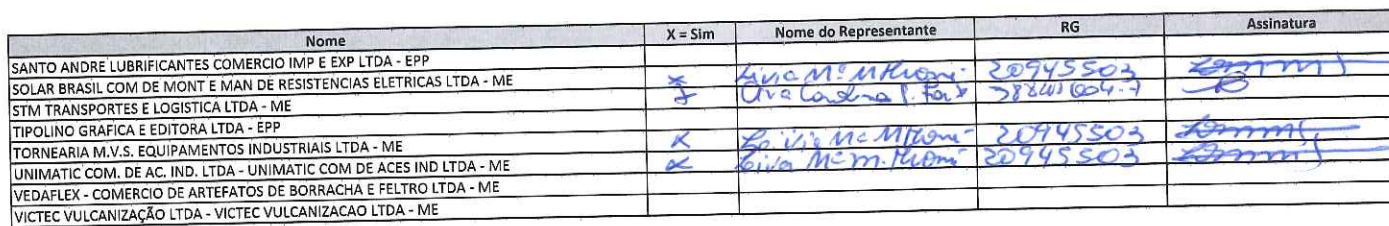 Nome X = Sim Nome do Representante RG Assinatura
SANTO ANDRE LUBRIFICANTES COMERCIO IMP E EXP LTDA - EPP
SOLAR BRASIL COM DE MONT E MAN DE RESISTENCIAS ELETRICAS LTDA - ME X 20945503
STM TRANSPORTES E LOGISTICA LTDA - ME
TIPOLINO GRAFICA E EDITORA LTDA - EPP
TORNEARIA M.V.S. EQUIPAMENTOS INDUSTRIAIS LTDA - ME X 20945503
UNIMATIC COM. DE AC. IND. LTDA - UNIMATIC COM DE ACES IND LTDA - ME X 20945503
VEDAFLEX - COMERCIO DE ARTEFATOS DE BORRACHA E FELTRO LTDA - ME
VICTEC VULCANIZAÇÃO LTDA - VICTEC VULCANIZACAO LTDA - ME